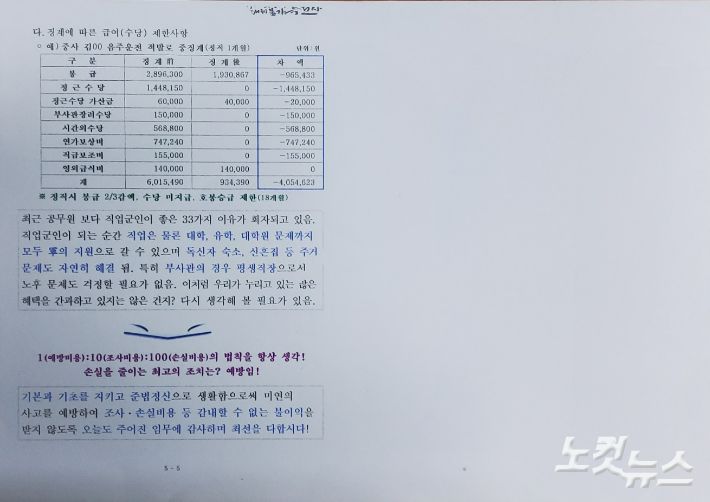 다. 징계에 따른 급여(수당) 제한사항
○ 예) 중사 김00 음주운전 적발로 중징계(정직 1개월) 단위 : 원
구 분 징 계 前 징 계 後 차 액
봉 급 2,896,300 1,930,867 -965,433
정 근 수 당 1,448,150 0 -1,448,150
정근수당 가산금 60,000 40,000 -20,000
부사관장려수당 150,000 0 -150,000
시간외수당 568,800 0 -568,800
연가보상비 747,240 0 -747,240
직급보조비 155,000 0 -155,000
영외급식비 140,000 140,000 0
계 6,015,490 934,390 -4,054,623
※ 정직시 봉급 2/3감액, 수당 미지급, 호봉승급 제한(18개월)
최근 공무원 보다 직업군인이 좋은 33가지 이유가 회자되고 있음.
직업군인이 되는 순간 직업은 물론 대학, 유학, 대학원 문제까지
모두 軍의 지원으로 갈 수 있으며 독신자 숙소, 신혼집 등 주거
문제도 자연히 해결 됨. 특히 부사관의 경우 평생직장으로서
노후 문제도 걱정할 필요가 없음. 이처럼 우리가 누리고 있는 많은
혜택을 간과하고 있지는 않은 건지? 다시 생각해 볼 필요가 있음.
1(예방비용):10(조사비용):100(손실비용)의 법칙을 항상 생각!
손실을 줄이는 최고의 조치는? 예방임!
기본과 기초를 지키고 준법정신으로 생활함으로써 미연의
사고를 예방하여 조사·손실비용 등 감내할 수 없는 불이익을
받지 않도록 오늘도 주어진 임무에 감사하며 최선을 다합시다!
5 - 5
노컷뉴스